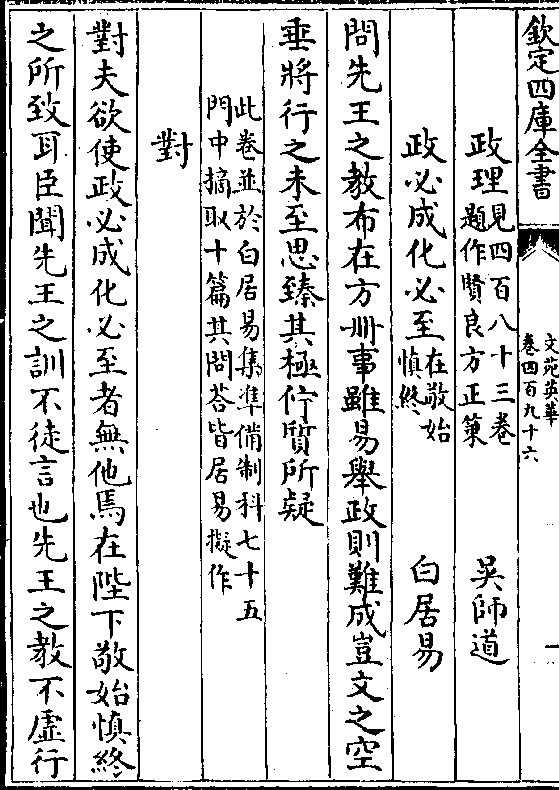 欽定四庫全書
文苑英華
卷四百九十六
一
政理見四百八十三卷題作賢良方正策 吳師道
政必成化必至在敬始慎終 白居易
問先王之教布在方冊事雖易舉政則難成豈文之空
垂將行之未至思臻其極佇質所疑
此卷並於白居易集準備制科七十五
門中摘取十篇其問荅皆居易擬作
對
對夫欲使政必成化必至者無他焉在陛下敬始慎終
之所致耳臣聞先王之訓不徒言也先王之教不虛行